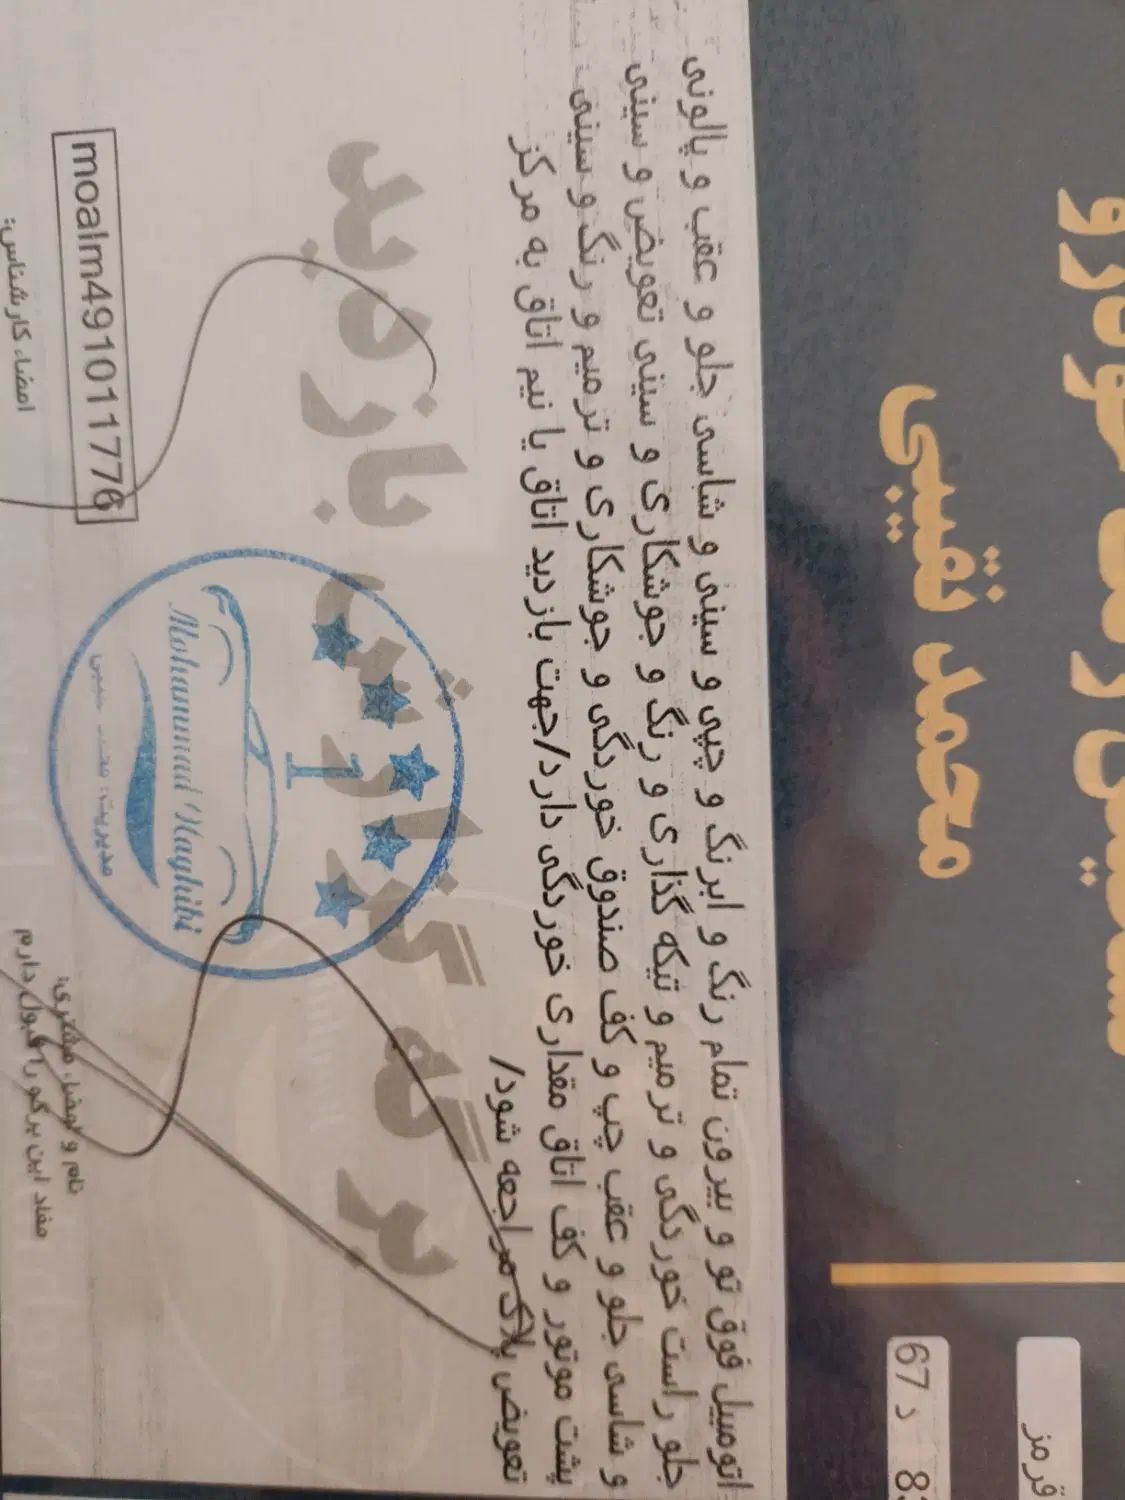 محمد نقیبی
قرمز
67 د
اتومبیل فوق تو و بیرون تمام رنگ و ابرنگ و چپی و سینی و شاسی جلو و عقب و پالونی
جلو راست خوردگی و ترمیم و تیکه گذاری و رنگ و جوشکاری و سینی تعویض و سینی
و شاسی جلو و عقب چپ و کف صندوق خوردگی و جوشکاری و ترمیم و رنگ و سینی
پشت موتور و کف اتاق مقداری خوردگی دارد/جهت بازدید اتاق یا نیم اتاق به مرکز
تعویض پلاک مراجعه شود/
برگه گزارش بازدید
1
Mohammad Naghibi
مدیریت: محمد
moalm491011776
امضاء کارشناس:
نام و امضاء مشتری:
مفاد این برگه را قبول دارم